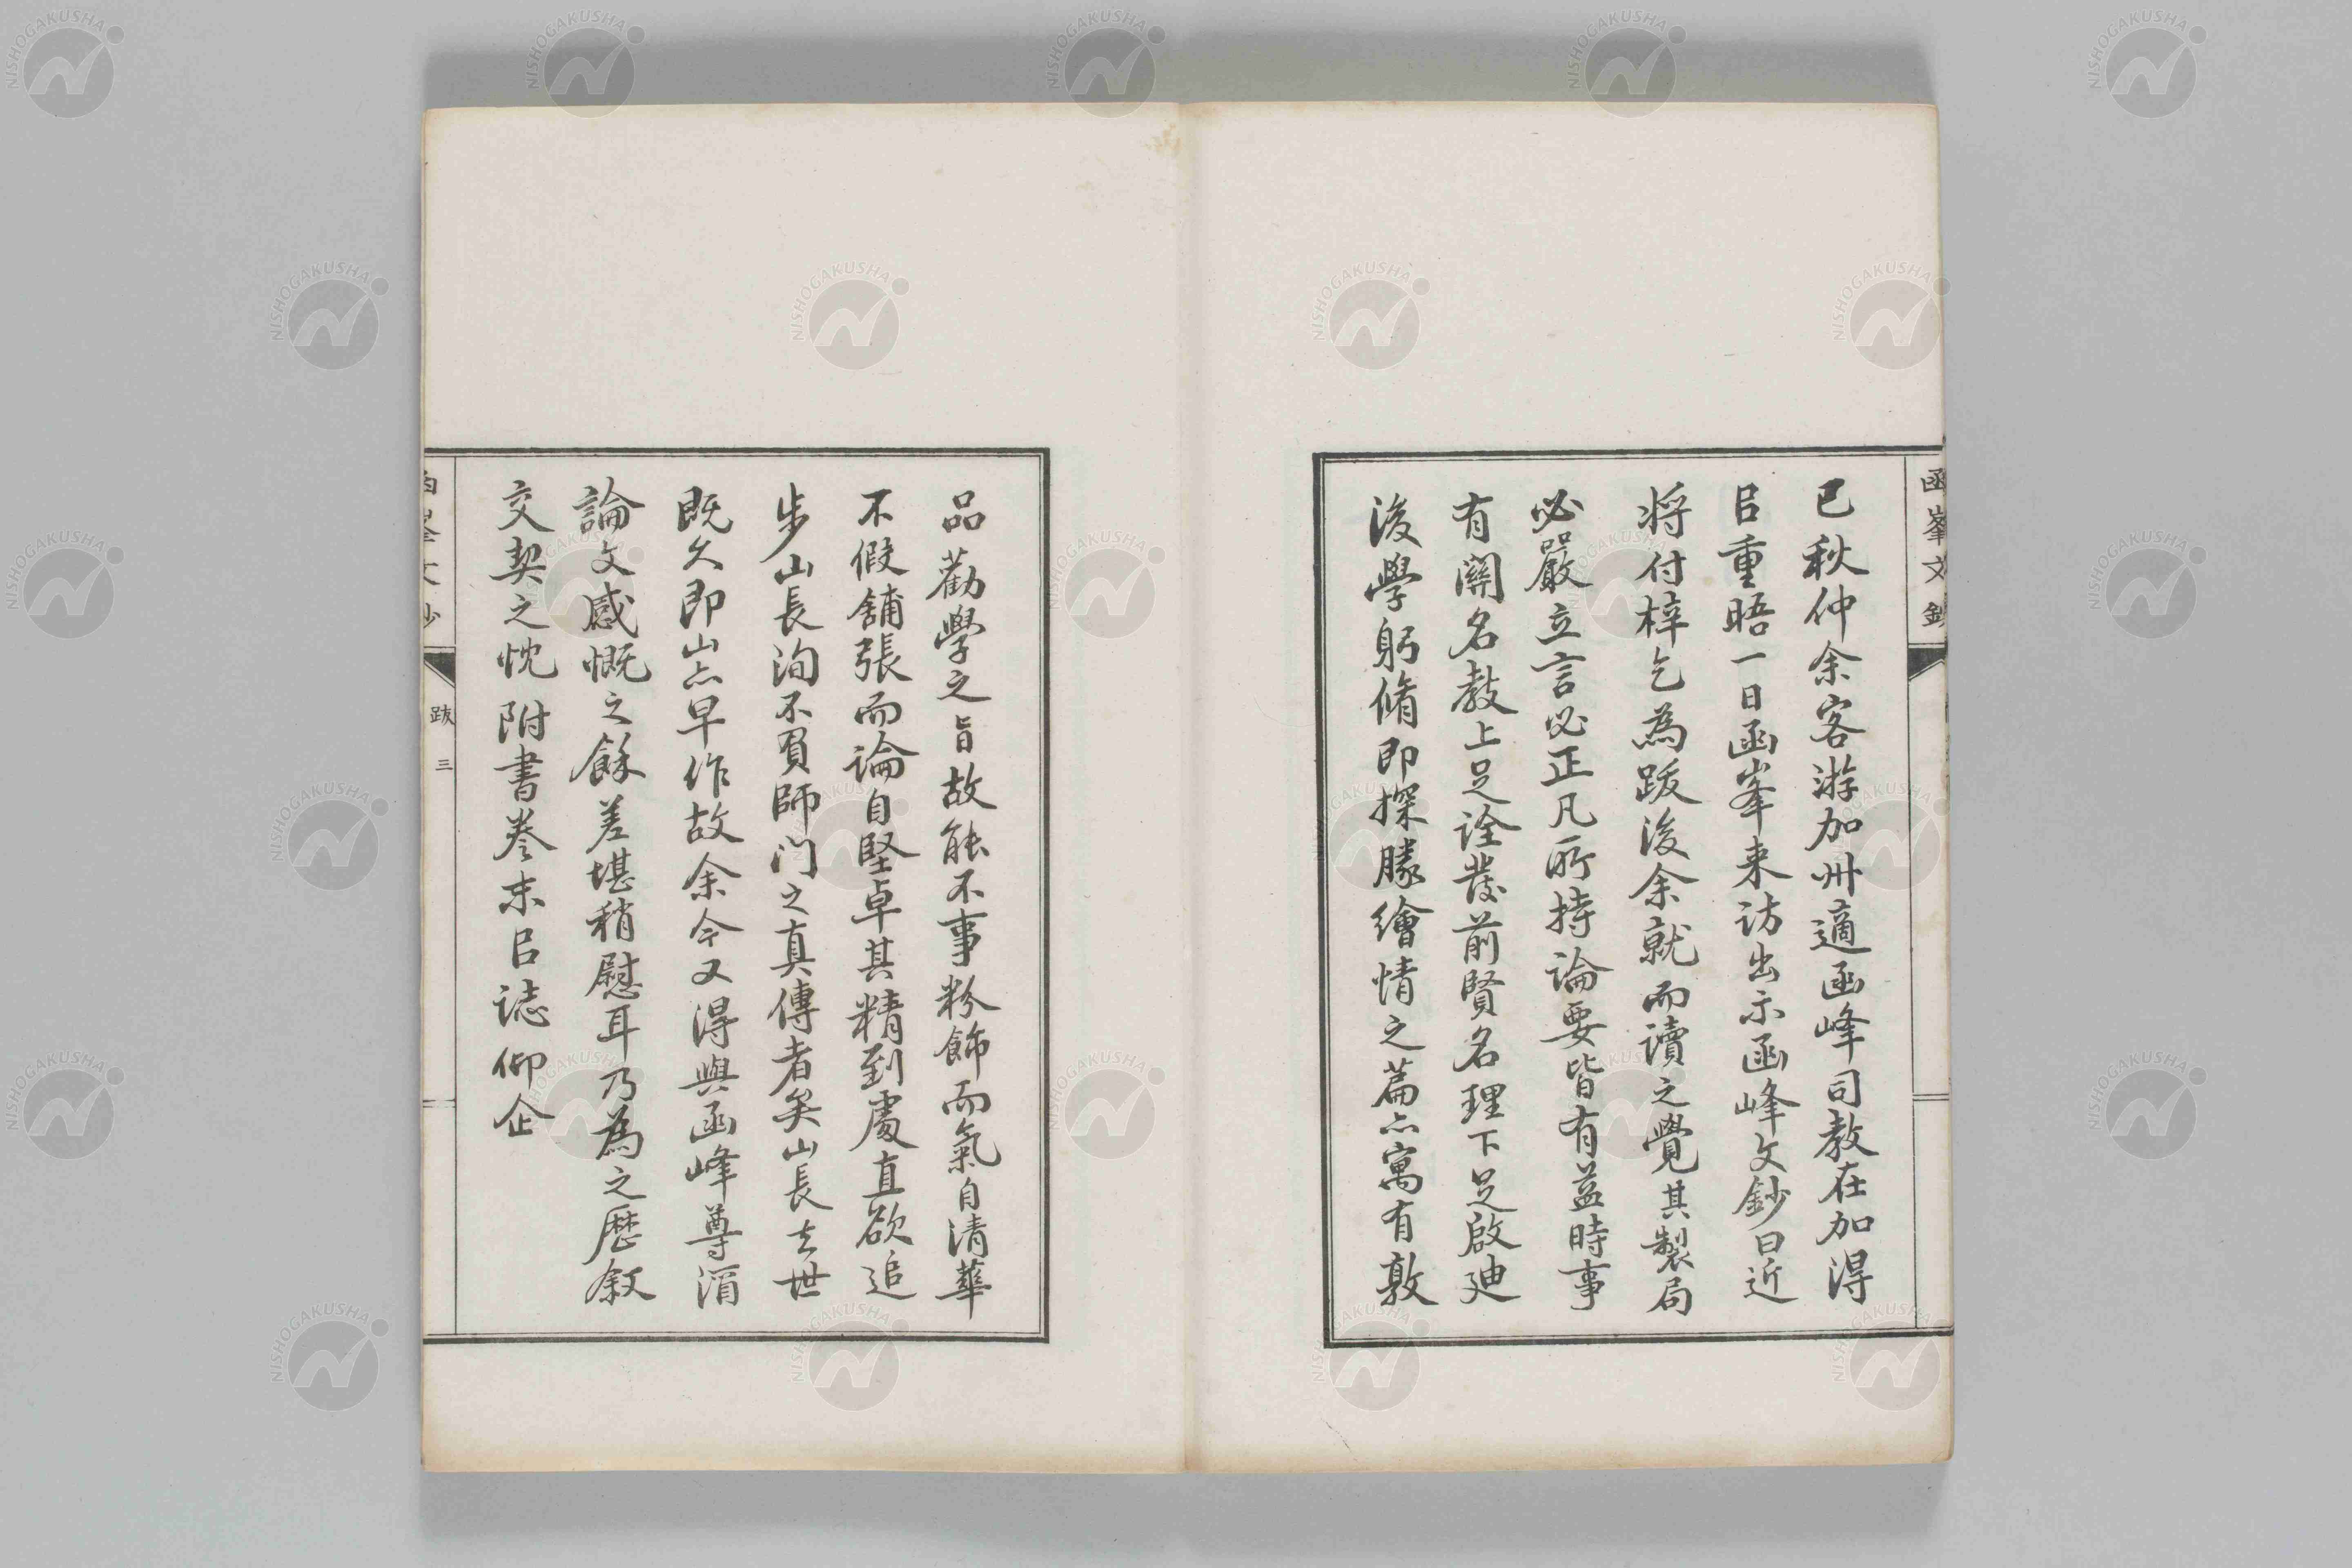 函峯文鈔
已秋仲余客游加州適函峰司教在加得
㠯重晤一日函峯来访出示函峰文鈔曰近
将付梓乞為跋後余就而讀之覺其製局
必嚴立言必正凡所持論要皆有益時事
有關名教上足詮發前賢名理下足啟廸
後學躬脩即探勝繪情之篇亦寓有敦
品勸學之旨故能不事粉飾而氣自清華
不假舖張而論自堅卓其精到處直欲追
步山長洵不負師门之真傳者矣山長去世
既久即山亦早作故余今又得與函峰尊酒
論文感慨之餘差堪稍慰耳乃為之歷叙
交契之忱附書卷末㠯誌仰企
跋 三
NISHOGAKUSHA